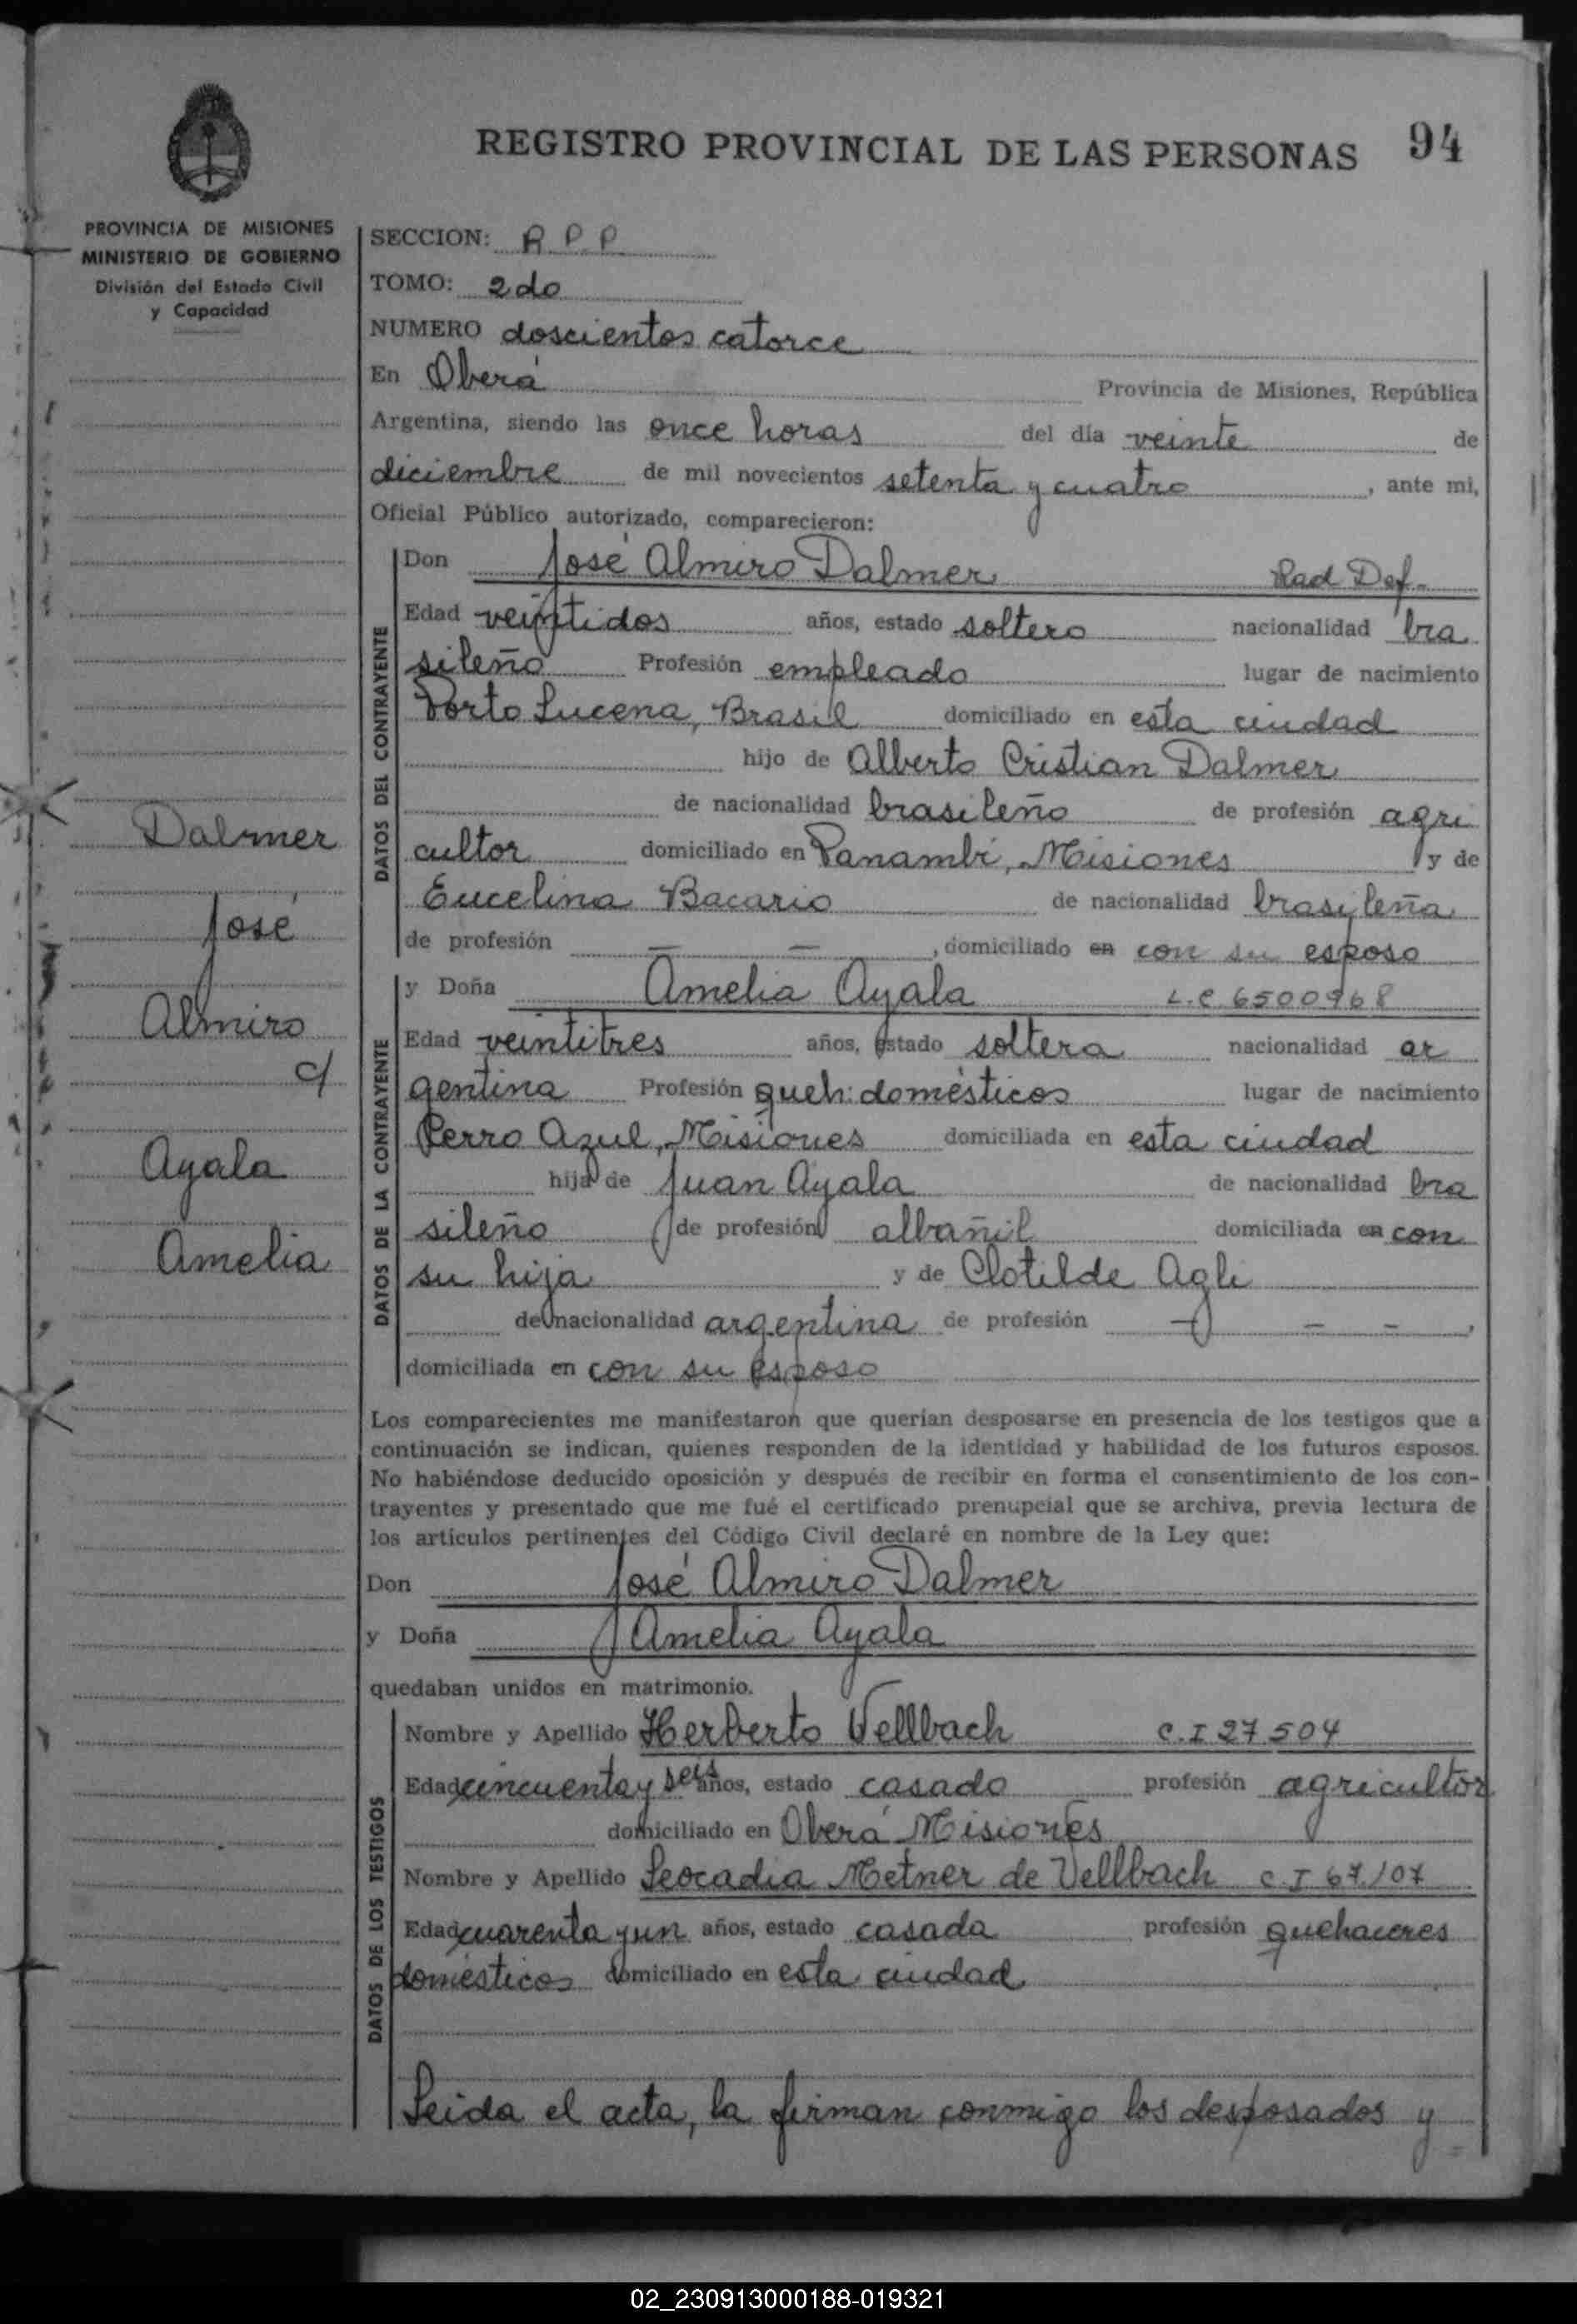 REGISTRO PROVINCIAL DE LAS PERSONAS 94
PROVINCIA DE MISIONES
MINISTERIO DE GOBIERNO
División del Estado Civil
y Capacidad
Dalmer
José
Almiro
c/
Ayala
Amelia
SECCION: R P P
TOMO: 2do
NUMERO doscientos catorce
En Oberá Provincia de Misiones, República
Argentina, siendo las once horas del día veinte de
diciembre de mil novecientos setenta y cuatro, ante mi,
Oficial Público autorizado, comparecieron:
DATOS DEL CONTRAYENTE
Don José Almiro Dalmer Rad Def.
Edad veintidos años, estado soltero nacionalidad bra
sileño Profesión empleado lugar de nacimiento
Porto Lucena, Brasil domiciliado en esta ciudad
hijo de Alberto Cristian Dalmer
de nacionalidad brasileño de profesión agri
cultor domiciliado en Panambí, Misiones y de
Eucelina Bacario de nacionalidad brasileña
de profesión — —, domiciliado en con su esposo
DATOS DE LA CONTRAYENTE
y Doña Amelia Ayala L.C 6500968
Edad veintitres años, estado soltera nacionalidad ar
gentina Profesión queh: domésticos lugar de nacimiento
Cerro Azul, Misiones domiciliada en esta ciudad
hija de Juan Ayala de nacionalidad bra
sileño de profesión albañil domiciliada en con
su hija y de Clotilde Agli
de nacionalidad argentina de profesión — — —,
domiciliada en con su esposo
Los comparecientes me manifestaron que querían desposarse en presencia de los testigos que a
continuación se indican, quienes responden de la identidad y habilidad de los futuros esposos.
No habiéndose deducido oposición y después de recibir en forma el consentimiento de los con-
trayentes y presentado que me fué el certificado prenupcial que se archiva, previa lectura de
los artículos pertinentes del Código Civil declaré en nombre de la Ley que:
Don José Almiro Dalmer
y Doña Amelia Ayala
quedaban unidos en matrimonio.
DATOS DE LOS TESTIGOS
Nombre y Apellido Herberto Vellbach C.I 27504
Edad cincuenta y seis años, estado casado profesión agricultor
domiciliado en Oberá Misiones
Nombre y Apellido Leocadia Metner de Vellbach C.I 67107
Edad cuarenta y un años, estado casada profesión quehaceres
domésticos domiciliado en esta ciudad
Leida el acta, la firman conmigo los desposados y
02_230913000188-019321